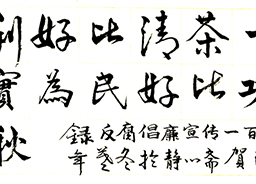 利好比清茶一
實為民好比功
秋
録反腐倡廉宣传一百
年冬於静心斋贺